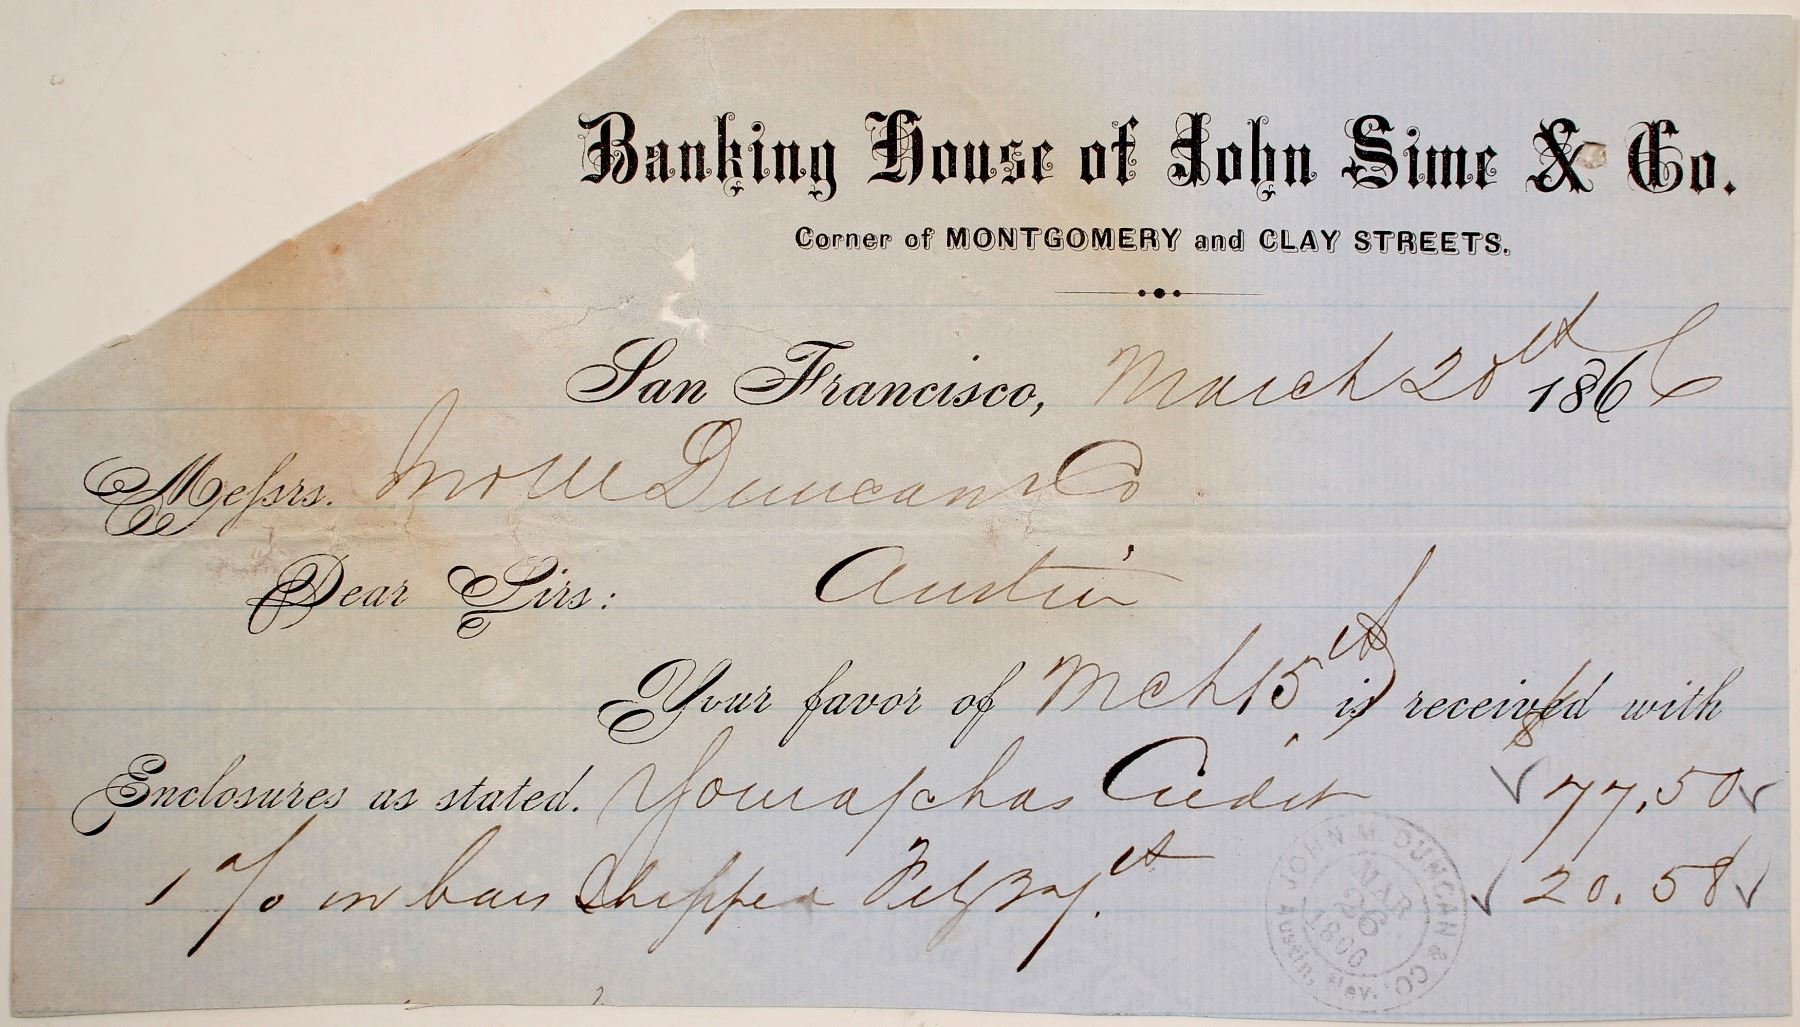 Banking House of John Sime & Co.
Corner of MONTGOMERY and CLAY STREETS.
San Francisco, March 20th 1866
Messrs. Jno M Duncan & Co
Dear Sirs: Austin
Your favor of Mch 15th is received with
Enclosures as stated. Your a/c has Credit 77,50
1 % on bars Shipped Feby 20.58
JOHN M. DUNCAN & CO.
MAR
26
1866
Austin, Nev.